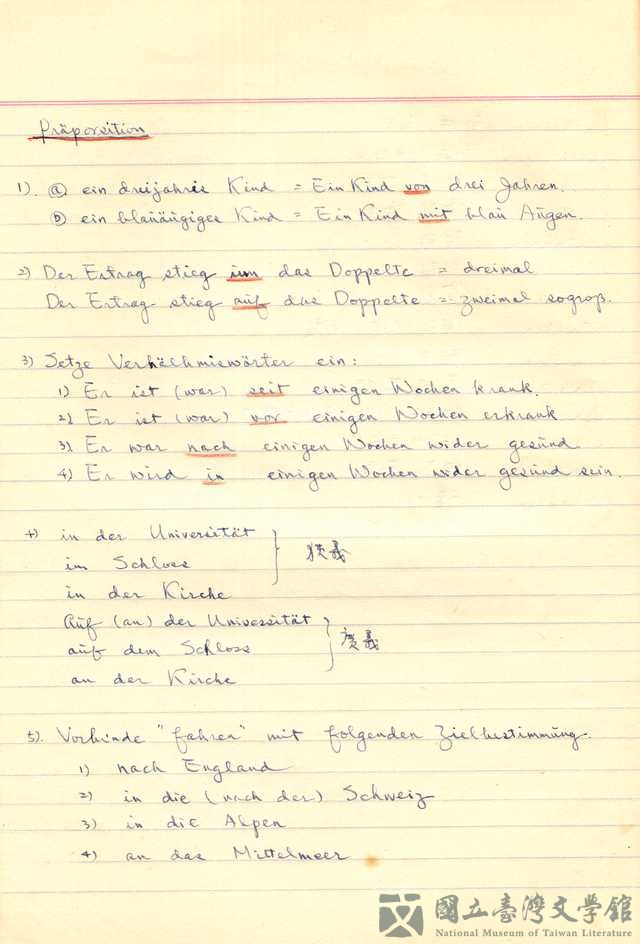 Präposition
1). ⓐ ein dreijahrie Kind = Ein Kind von drei Jahren.
ⓑ ein blauäugiges Kind = Ein Kind mit blau Augen.
2) Der Ertrag stieg um das Doppelte = dreimal
Der Ertrag stieg auf das Doppelte = zweimal sogroß.
3) Setze Verhältmiswörter ein:
1) Er ist (war) seit einigen Wochen krank.
2) Er ist (war) vor einigen Wochen erkrank
3) Er war nach einigen Wochen wider gesund
4) Er wird in einigen Wochen wider gesund sein.
4) in der Universität
im Schloss
狹義
in der Kirche
Auf (an) der Universität
auf dem Schloss
廣義
an der Kirche
5). Verbinde "fahren" mit folgenden Zielbestimmung.
1) nach England
2) in die (nach der) Schweiz
3) in die Alpen
4) an das Mittelmeer
國立臺灣文學館
National Museum of Taiwan Literature